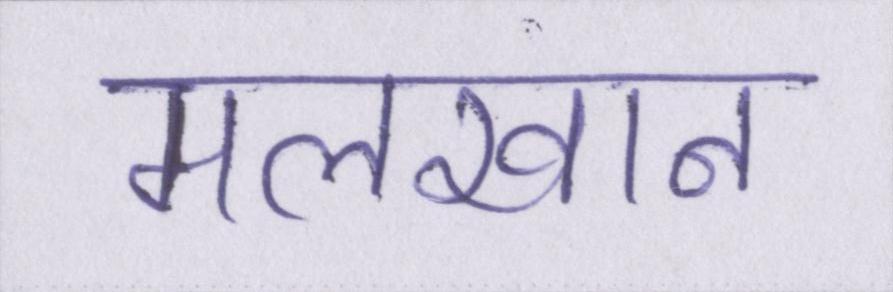 मलखान